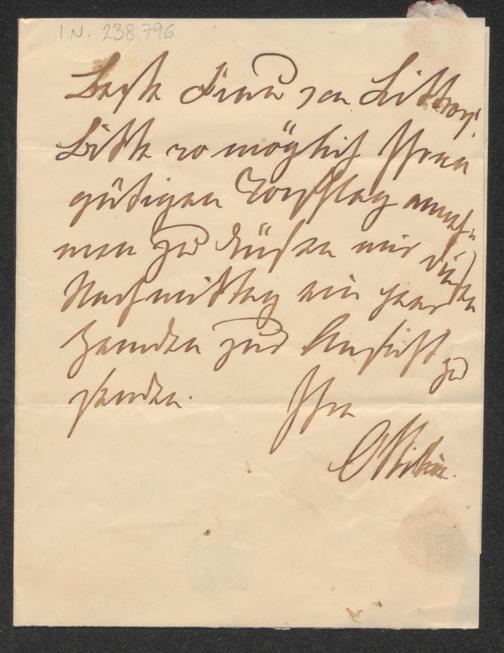 I.N. 238.796
Beste Frau von Littrow!
Bitte wo möglich Ihren
gütigen Vorschlag anneh-
men zu dürfen mir diesen
Nachmittag ein paar
Hemden zur Ansicht zu
senden.
Ihre
Ottilie